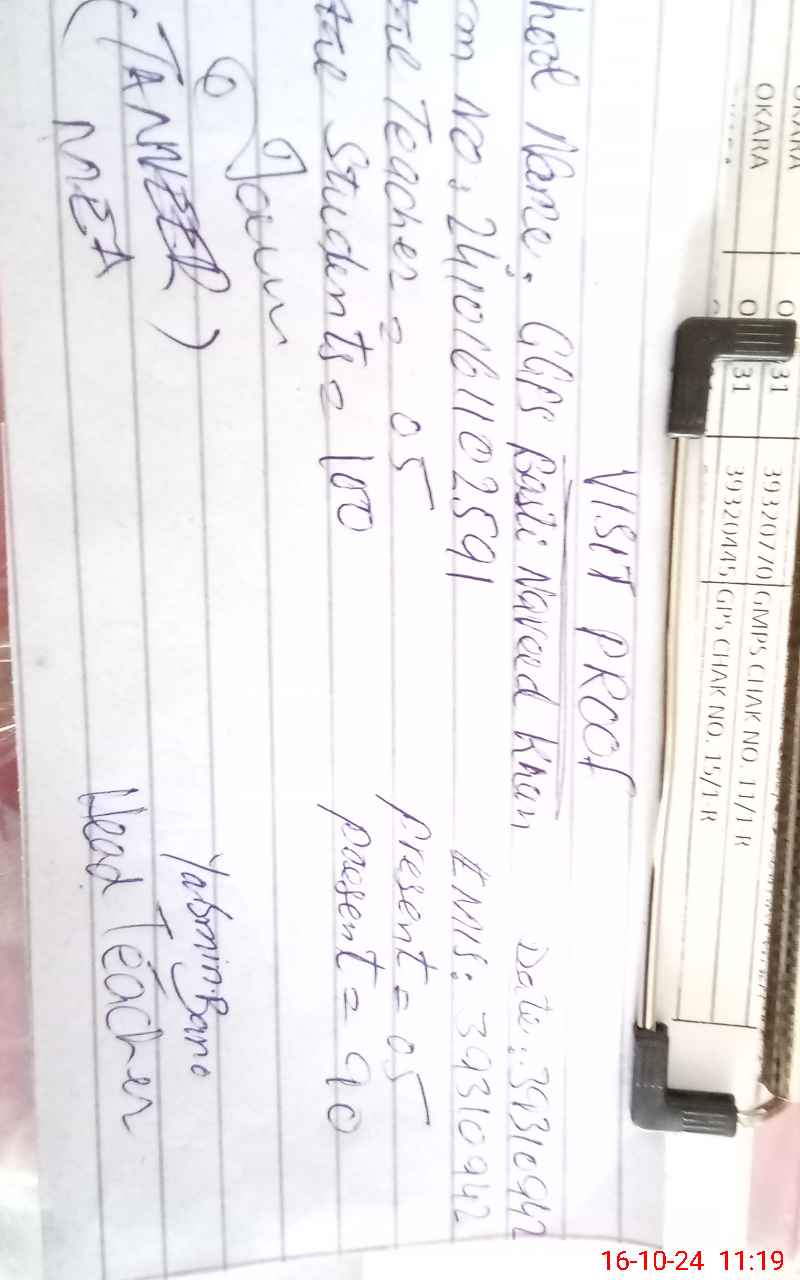 OKARA
OKARA
31 39320770 GMPS CHAK NO. 11/1-R
31 39320445 GPS CHAK NO. 15/1-R
VISIT PROOF
hool Name: GGPS Basti Naveed Khan Date: 39310942
m No: 2410161102591 EMIS: 39310942
Teacher = 05 present = 05
Students = 100 paesent = 90
(TANVEER) Yasmin Bano
MEA Head Teacher
16-10-24 11:19